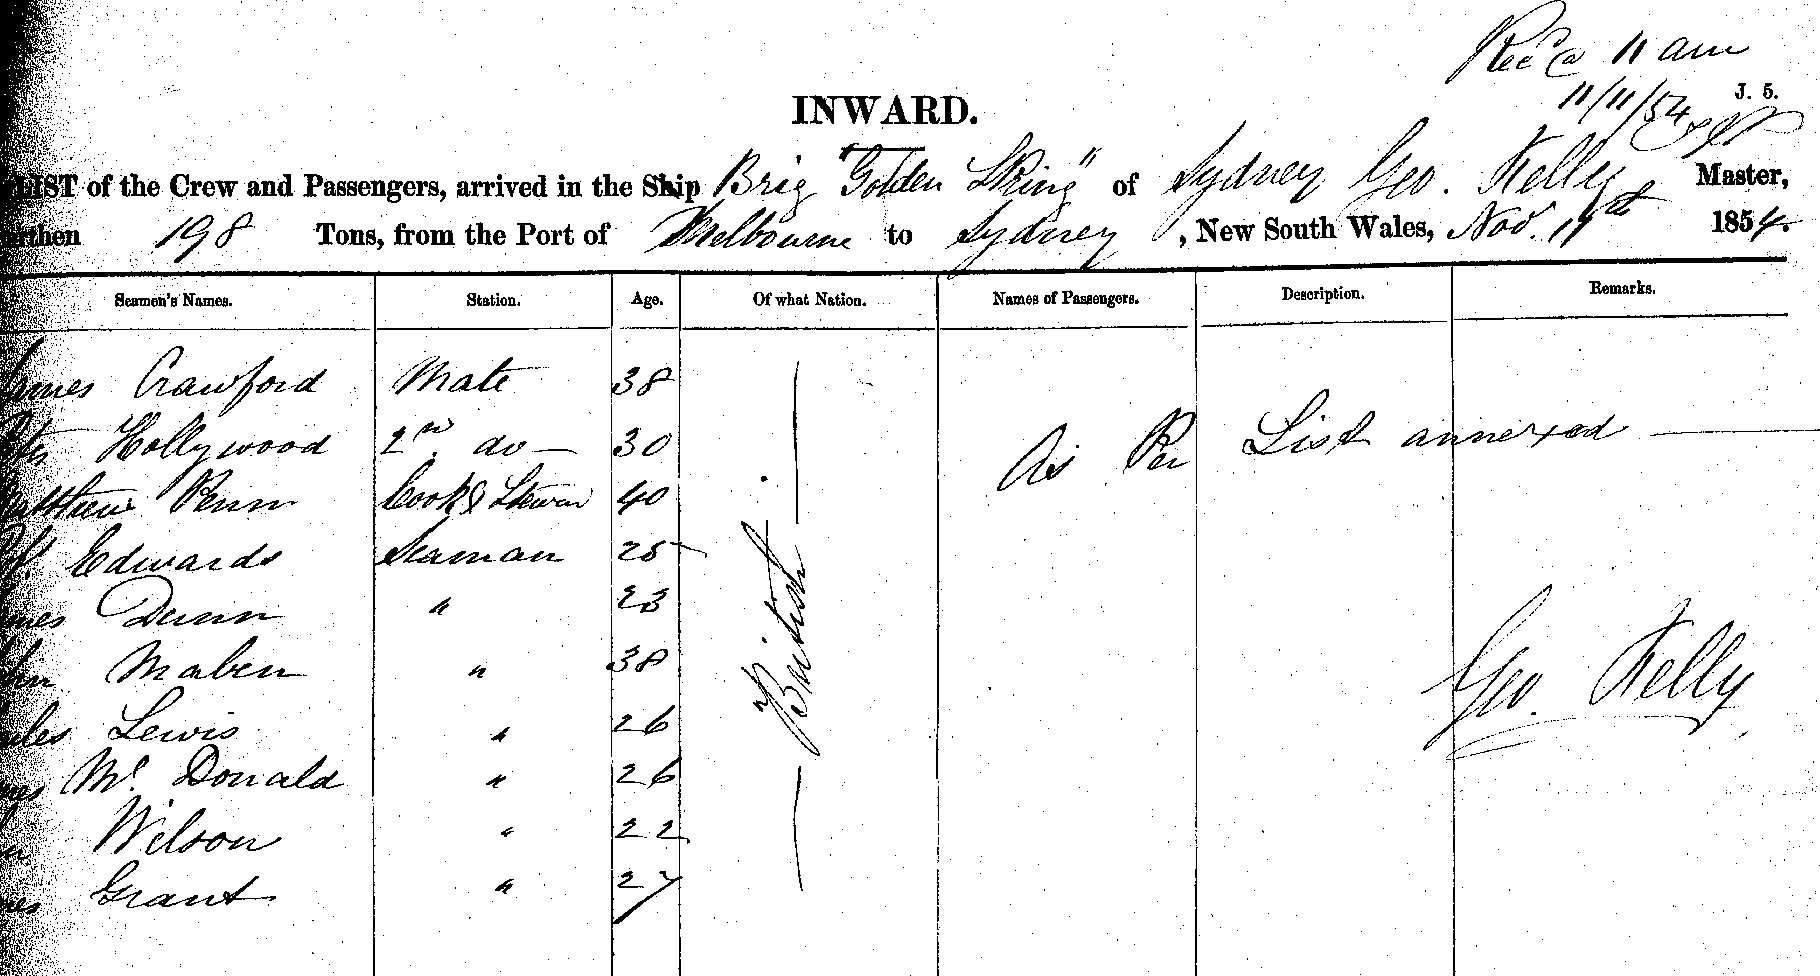 Rec'd 11 am
11/11/54
J. 5.
INWARD.
LIST of the Crew and Passengers, arrived in the Ship Brig "Golden Spring" of Sydney Geo. Kelly Master,
Burthen 198 Tons, from the Port of Melbourne to Sydney, New South Wales, Nov. 11th 1854
Seamen's Names. Station. Age. Of what Nation. Names of Passengers. Description. Remarks.
James Crawford Mate 38
Hollywood 2nd do — 30
As Per List annexed —
Matthew Penn Cook & Steward 40
Edwards Seaman 25
James Dunn " 23
John Maben " 38
British
Geo. Kelly
Lewis " 26
Mc. Donald " 26
Wilson " 22
Grant " 27